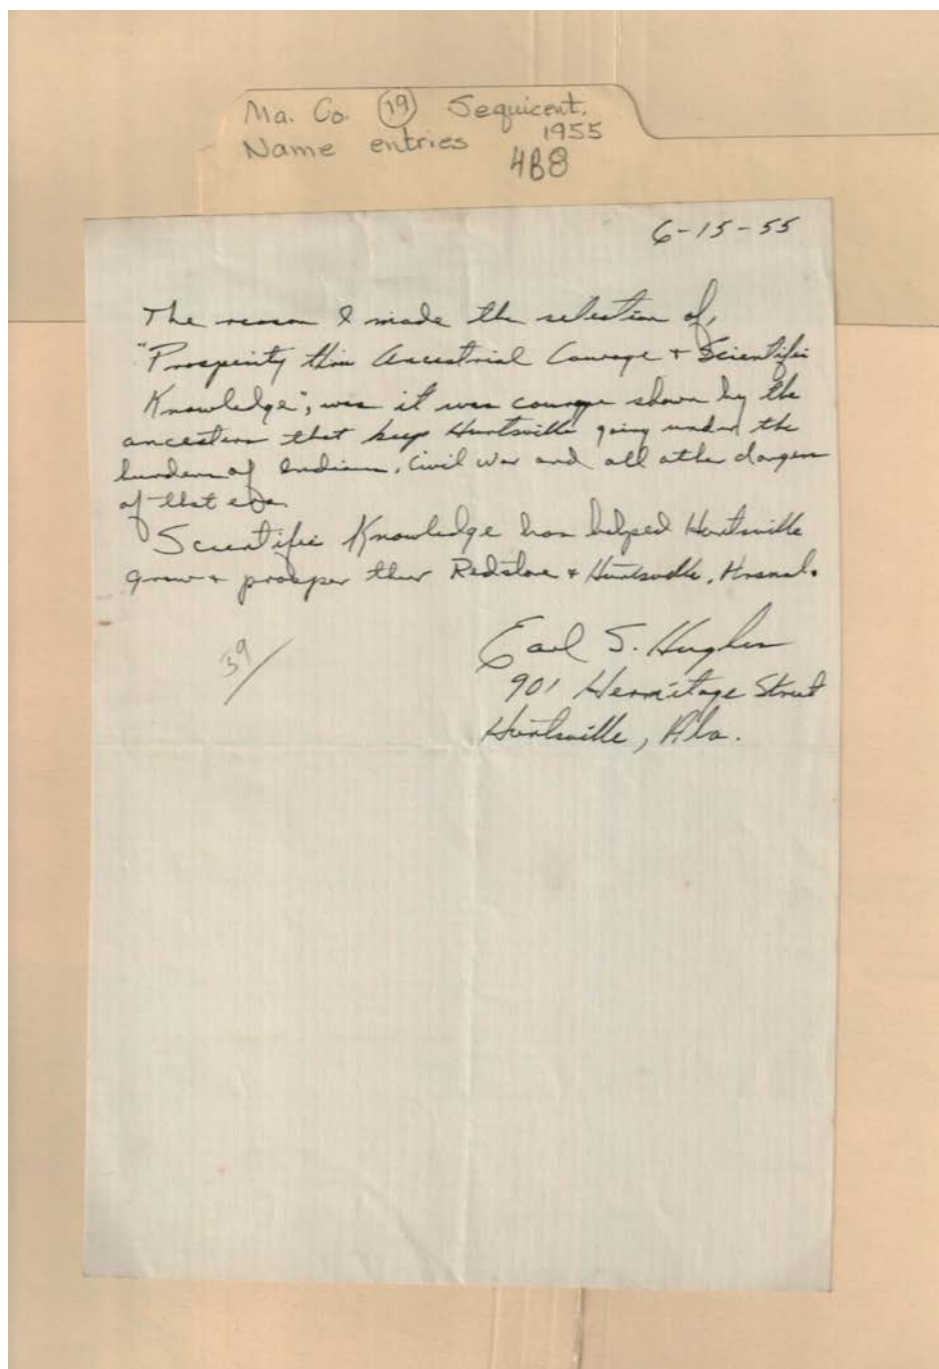 Ma. Co. 19 Sequicent.
1955
Name entries
4B8
6-15-55
The reason I made the selection of,
"Prosperity thru Ancestrial Courage + Scientific
Knowledge", was it was courage shown by the
ancestors that keep Huntsville going under the
burdens of Indians, Civil War and all other dangers
of that
Scientific Knowledge has helped Huntsville
grow + prosper thru Redstone + Huntsville, Arsenal.
39
Earl S. Hughes
901 Hermitage Street
Huntsville, Ala.